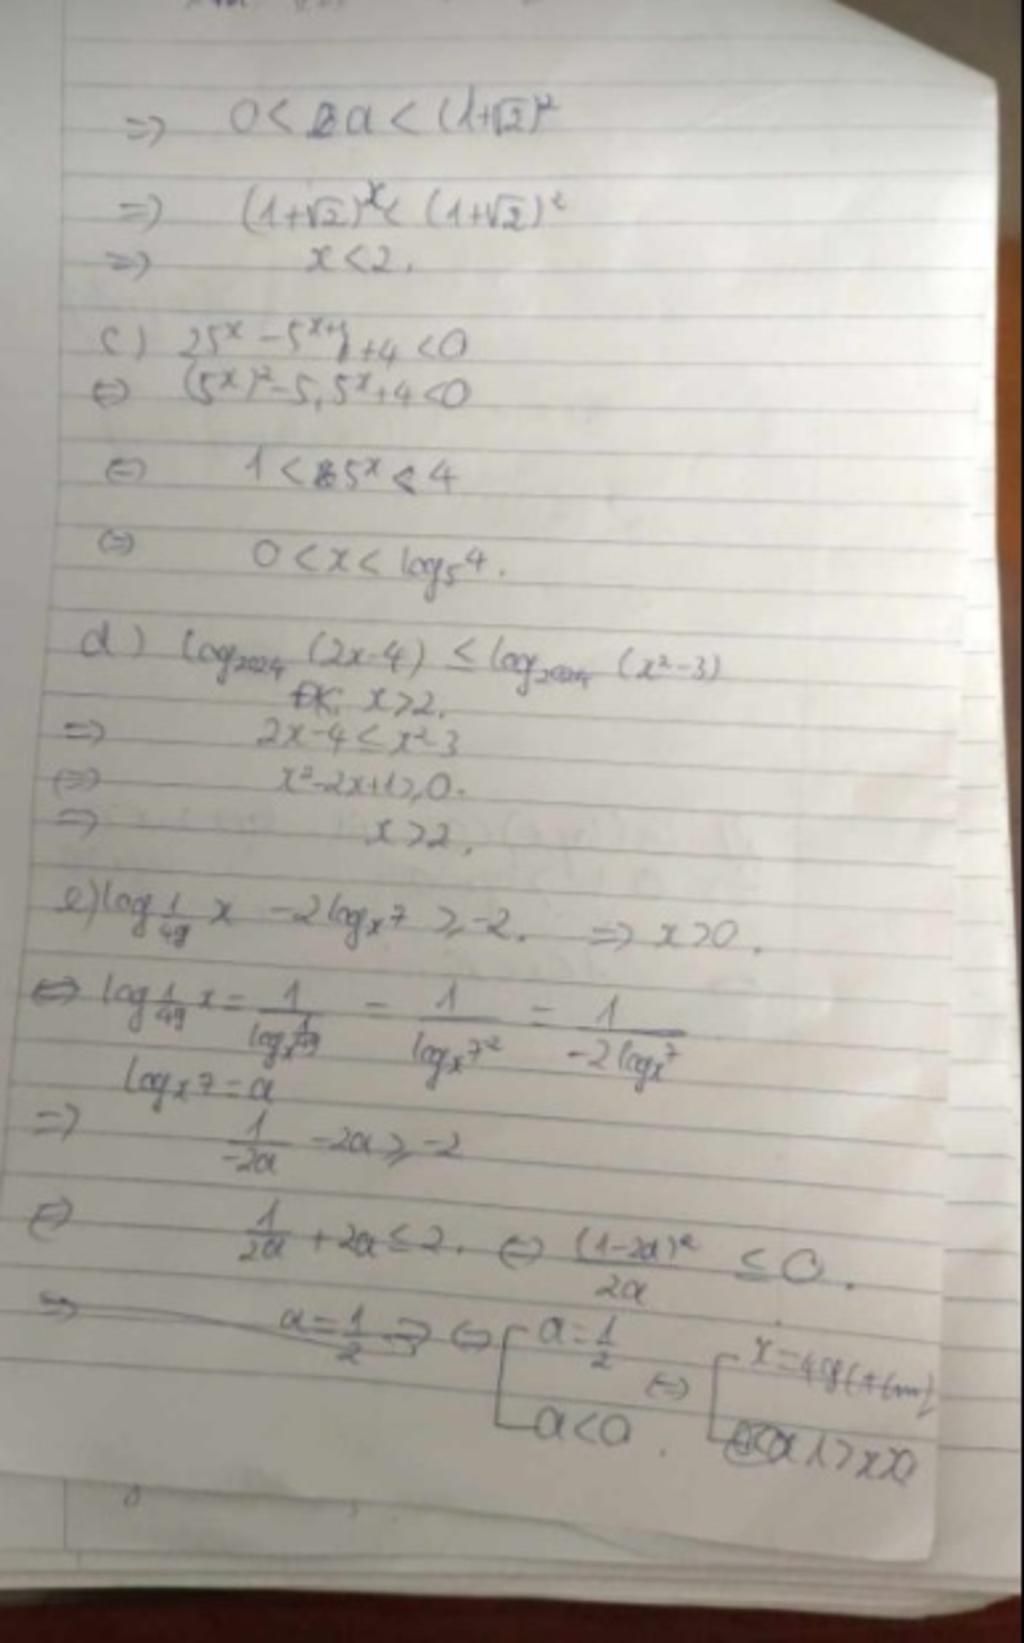 => 0 < 2a < (1+√2)²
=> (1+√2)^x < (1+√2)²
=> x < 2.
c) 25^x - 5^(x+1) + 4 < 0
<=> (5^x)² - 5.5^x + 4 < 0
<=> 1 < 5^x < 4
<=> 0 < x < log₅4.
d) log₂₀₂₄ (2x-4) ≤ log₂₀₂₄ (x²-3)
ĐK: x > 2.
=> 2x-4 ≤ x²-3
<=> x²-2x+1 ≥ 0.
=> x > 2.
e) log_(1/49) x - 2log_x 7 ≥ -2. => x > 0.
<=> log_(1/49) x = 1/(log_x 1/49) = 1/(log_x 7^-2) = 1/(-2log_x 7)
log_x 7 = a
=> 1/(-2a) - 2a ≥ -2
<=> 1/(2a) + 2a ≤ 2. <=> (1-2a)²/(2a) ≤ 0.
=> a = 1/2 => <=> [ a = 1/2 <=> [ x = 49 (t/m)
a < 0. 1 > x > 0